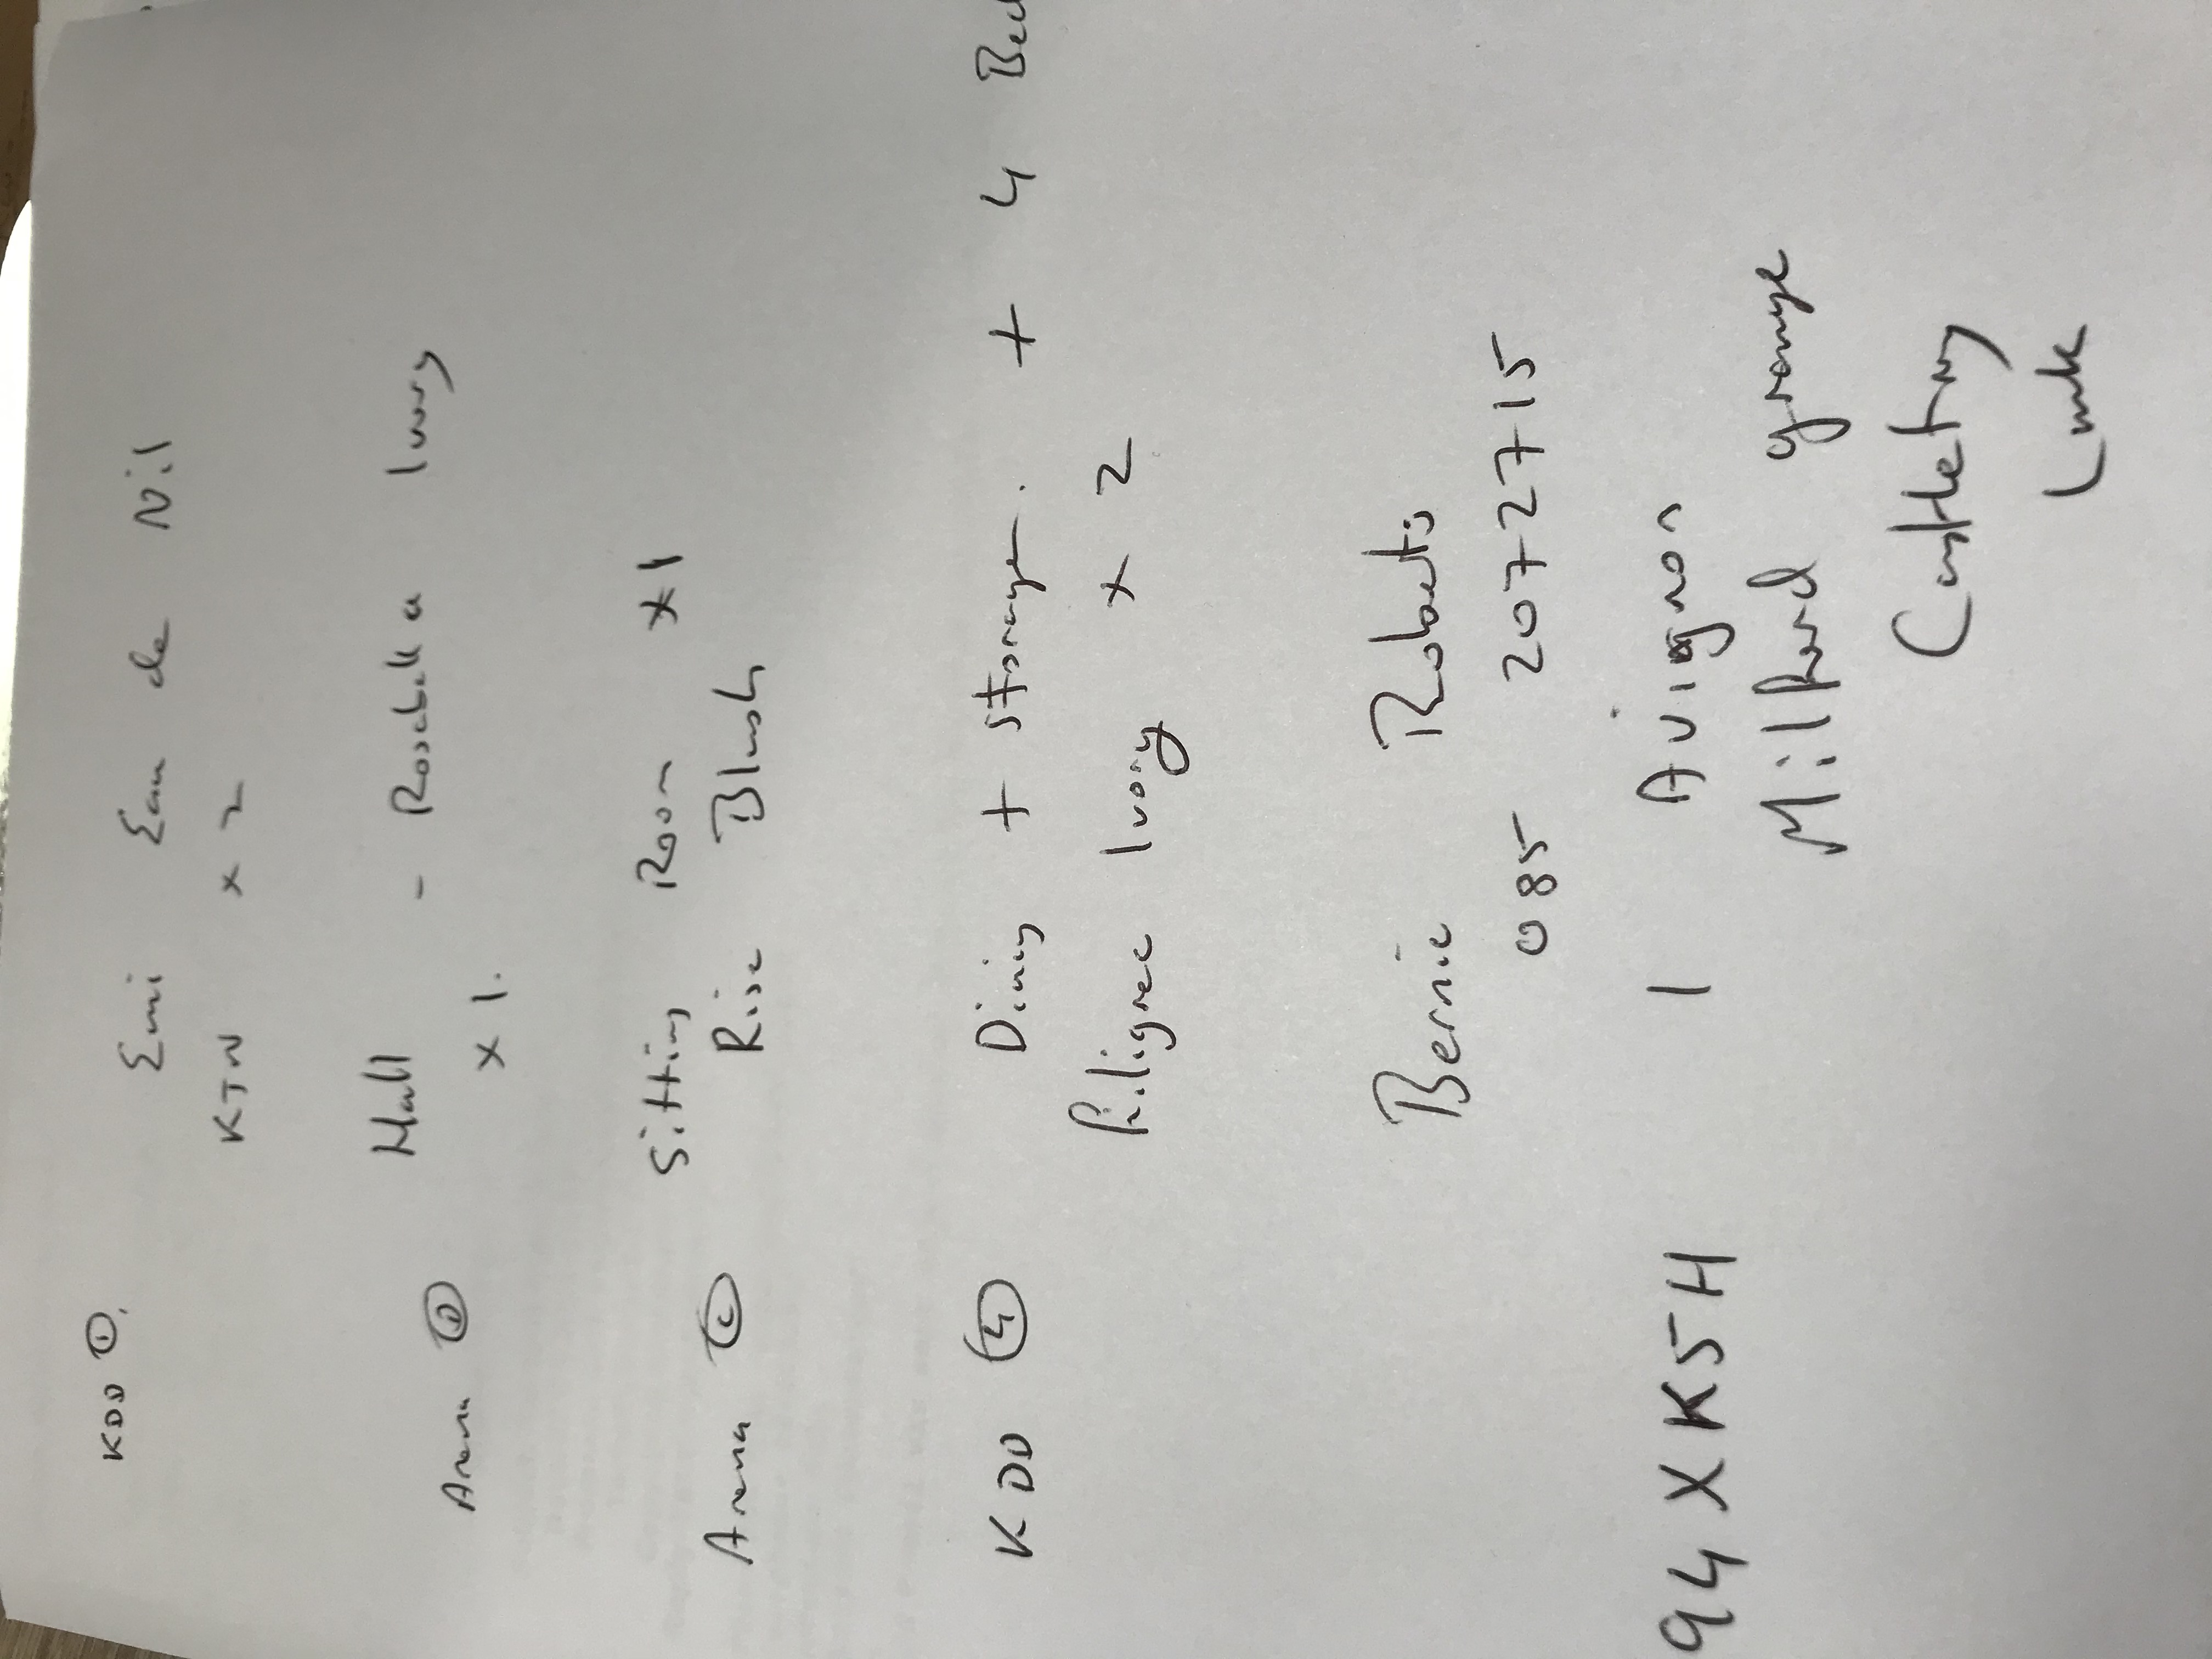 KDD ①.
Emi Eau de Nil
KTN x 2
Hall - Rosabella Ivory
Arena ②
x 1.
Sitting Room x 1
Arena Rise Blush
KDD ④ Dining + Storage. + 4 Bed
Filigree Ivory x 2
Bernie Roberts
085 2072715
94XK5H 1 Avignon
Milford grange
Castletroy
Limk